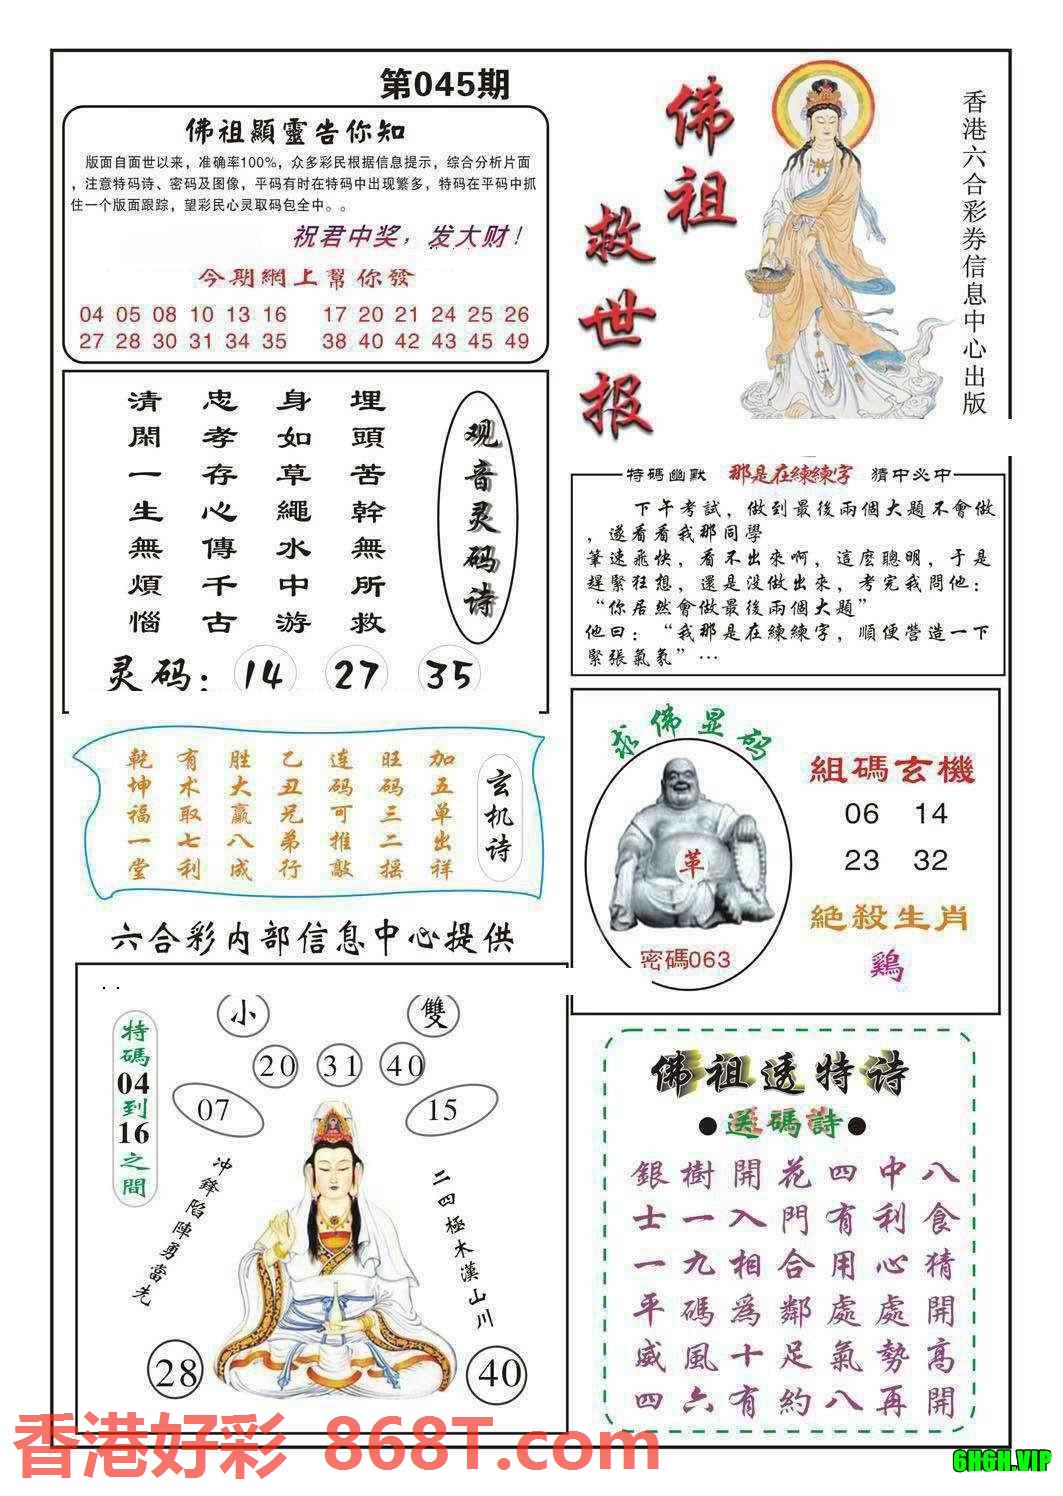 第045期
佛祖顯靈告你知
版面自面世以来，准确率100%，众多彩民根据信息提示，综合分析片面
，注意特码诗、密码及图像，平码有时在特码中出现繁多，特码在平码中抓
住一个版面跟踪，望彩民心灵取码包全中。。
祝君中奖，发大财！
今期網上幫你發
04 05 08 10 13 16 17 20 21 24 25 26
27 28 30 31 34 35 38 40 42 43 45 49
佛祖
救世报
香港六合彩券信息中心出版
观音灵码诗
埋頭苦幹無所救
身如草繩水中游
忠孝存心傳千古
清閑一生無煩惱
灵码：14 27 35
特碼幽默 那是在練練字 猜中必中
下午考試，做到最後兩個大題不會做
，遂看看我那同學
筆速飛快，看不出來啊，這麼聰明，于是
趕緊狂想，還是没做出來，考完我問他：
“你居然會做最後兩個大題”
他曰：“我那是在練練字，順便營造一下
緊張氣氛”…
玄机诗
加五单出祥
旺码三二摇
连码可推敲
乙丑兄弟行
胜大赢八成
有术取七利
乾坤福一堂
求佛显码
革
密碼063
組碼玄機
06 14
23 32
絶殺生肖
鷄
六合彩内部信息中心提供
小
雙
20 31 40
07
15
特碼04到16之間
冲鋒陷陣勇當先
二四極木漢山川
28
40
佛祖透特诗
●送碼詩●
銀樹開花四中八
士一入門有利食
一九相合用心猜
平碼為鄰處處開
威風十足氣勢高
四六有約八再開
香港好彩 868T.com
6H6H.VIP